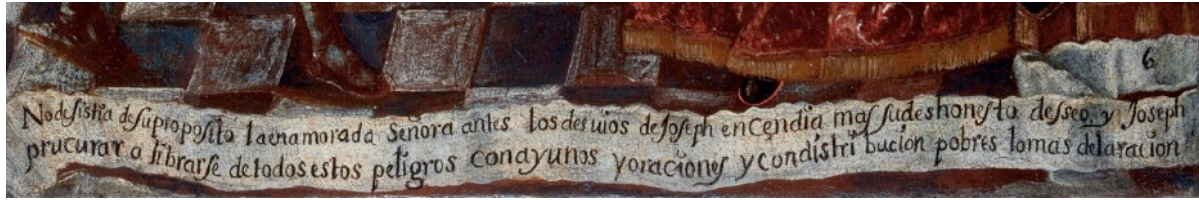 6
No desistia desuproposito laenamorada Señora antes los desuios deJoseph encendia mas sudeshonesto desseo, y Joseph
prucurar a librarse detodosestos peligros conayunos yoraciones ycondistri bucion pobres lomas delaracion